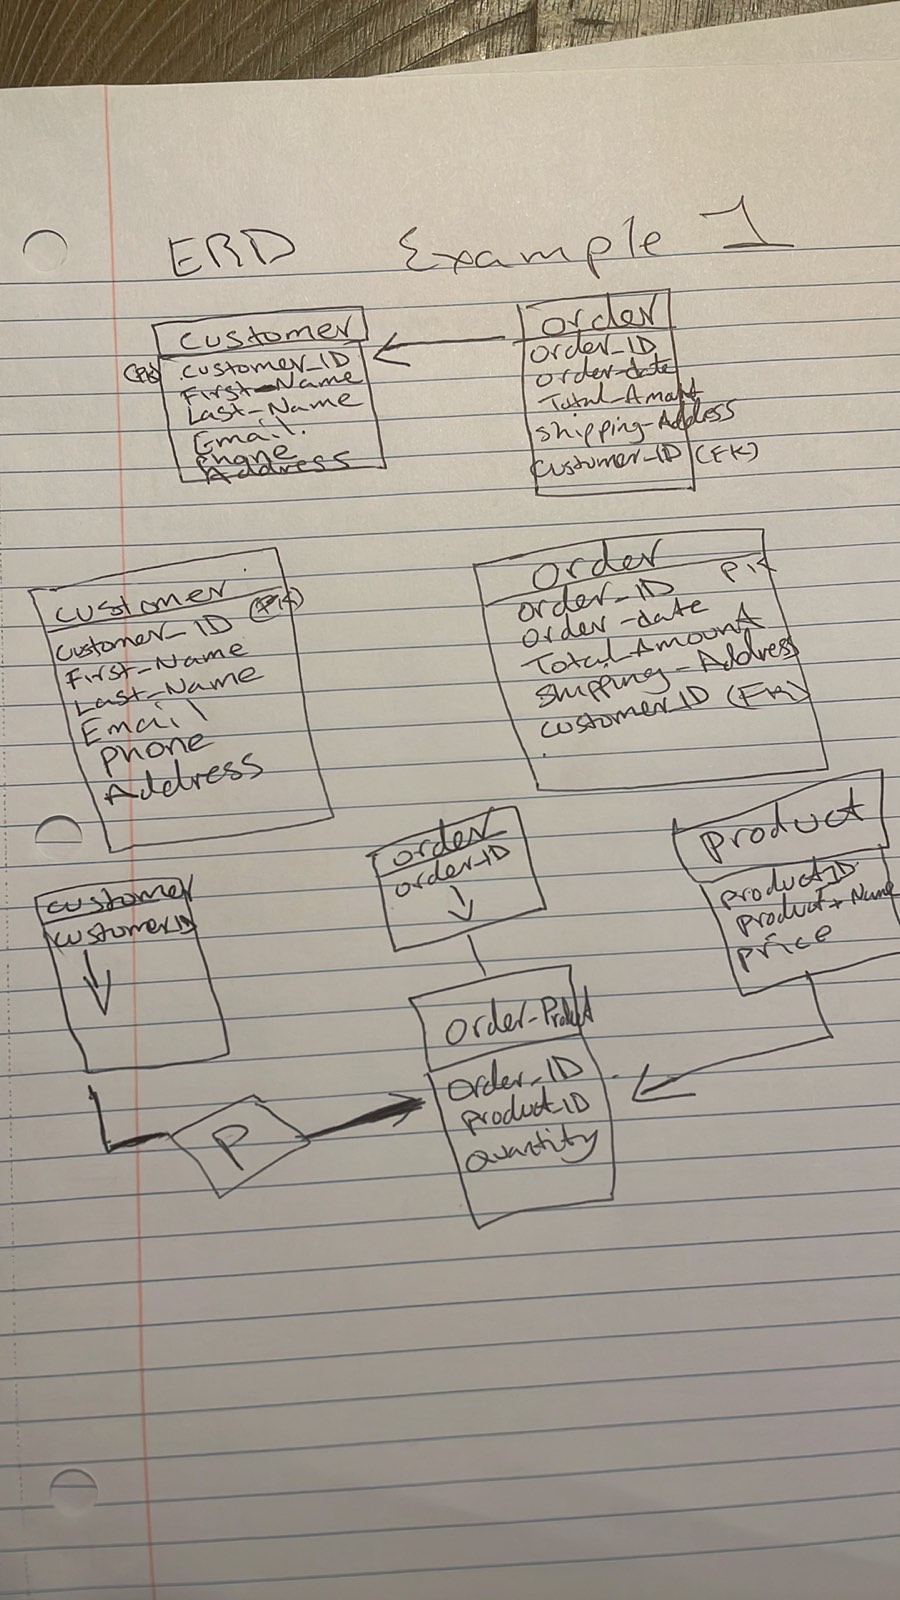 ERD Example 1
customer
(PK) customer_ID
First-Name
Last-Name
Email.
Phone
Address
order
order_ID
order-date
Total-Amont
Shipping-Address
customer_ID (FK)
customer
customer_ID (PK)
First-Name
Last-Name
Email
Phone
Address
order
order_ID PK
order-date
Total Amount
Shipping-Address
customer_ID (FK)
customer
customer ID
order
order-ID
product
product ID
product Name
price
P
order-Product
order_ID
product_ID
Quantity